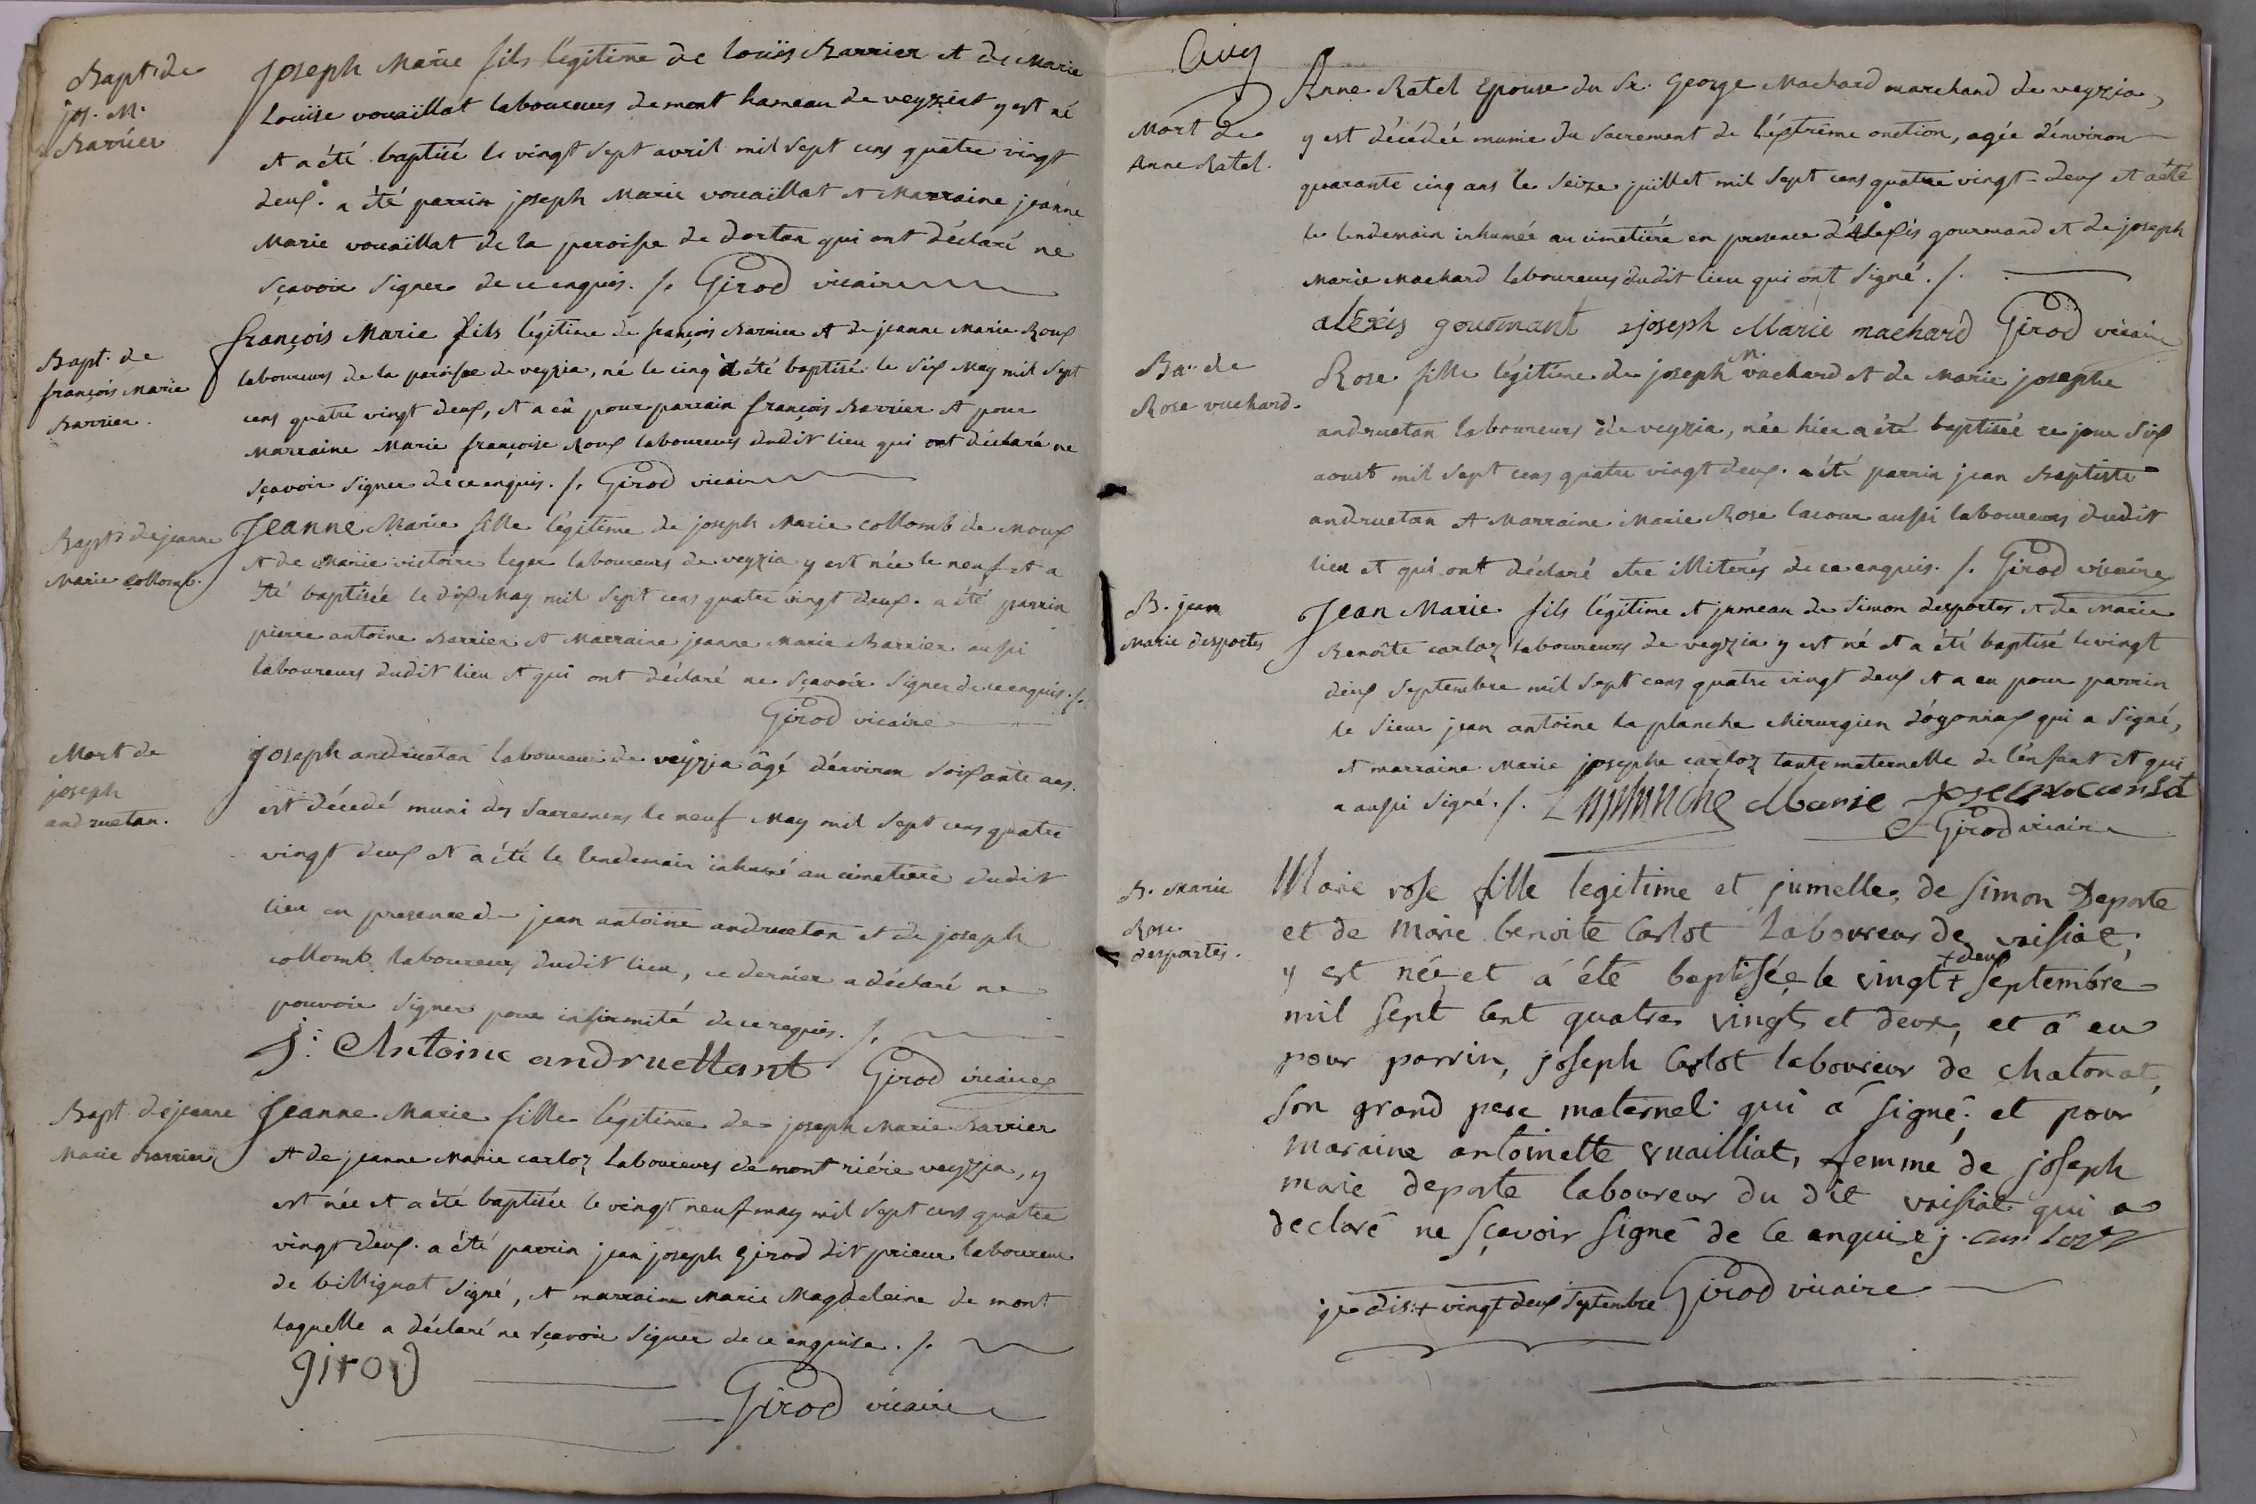 Bapt. de
jos. M.
Barrier
Joseph Marie fils légitime de loüis Barrier et de Marie
Loüise vouaillat laboureurs de mont hameau de veyziat y est né
et a été baptisé le vingt sept avril mil sept cens quatre vingt
deux. a été parrin joseph Marie vouaillat et Marraine jeanne
Marie vouaillat de la paroisse de dortan qui ont déclaré ne
sçavoir signer de ce enquis. /. Girod vicaire
Bapt. de
françois Marie
Barrier.
françois Marie fils légitime de françois Barrier et de jeanne Marie Roux
laboureurs de la paroisse de veyzia, né le cinq et été baptisé le six May mil sept
cens quatre vingt deux, et a eû pour parrain françois Barrier et pour
Marraine Marie françoise Roux laboureurs dudit lieu qui ont déclaré ne
sçavoir signer de ce enquis. /. Girod vicaire
Bapt. de jeanne
Marie collomb.
Jeanne Marie fille légitime de joseph Marie collomb de Moux
et de Marie victoire leger laboureurs de veyzia y est née le neuf et a
été baptisée le dix May mil sept cens quatre vingt deux. a été parrin
pierre antoine Barrier et Marraine jeanne Marie Barrier aussi
laboureurs dudit lieu et qui ont déclaré ne sçavoir signer de ce enquis. /.
Girod vicaire
Mort de
joseph
andruetan.
joseph andruetan laboureur de veyzia âgé d'environ soixante ans.
est décedé muni des sacremens le neuf May mil sept cens quatre
vingt deux et a été le lendemain inhumé au cimetiere dudit
lieu en presence de jean antoine andruetan et de joseph
collomb laboureurs dudit lieu, ce dernier a déclaré ne
pouvoir signer pour infirmité de ce requis. /.
j: Antoine andruettant Girod vicaire
Bapt. de jeanne
Marie Barrier
Jeanne Marie fille légitime de joseph Marie Barrier
et de jeanne Marie carloz laboureurs de mont riére veyzia, y
est née et a été baptisée le vingt neuf may mil sept cens quatre
vingt deux. a été parrin jean joseph Girod dit prieur laboureur
de billignat signé, et marraine Marie Magdeleine de mont
laquelle a déclaré ne sçavoir signer de ce enquise. /.
girod
Girod vicaire
Mort de
Anne Ratel.
Anne Ratel Epouse du Sr. George Machard marchand de veyzia,
y est décédée munie du sacrement de l'éxtrême onction, agée d'environ
quarante cinq ans le seize juillet mil sept cens quatre vingt-deux et a été
le lendemain inhumée au cimetiére en presence d'Aléxis gourmand et de joseph
Marie Machard laboureurs dudit lieu qui ont signé. /.
aléxis gourmant joseph Marie machard Girod vicaire
Ba. de
Rose vuchard.
Rose fille légitime de joseph M. vuchard et de Marie josephe
andruetan laboureurs de veyzia, née hier a été baptisée ce jour six
aoust mil sept cens quatre vingt deux. a été parrin jean Baptiste
andruetan et Marraine Marie Rose lacour aussi laboureurs dudit
lieu et qui ont déclaré etre illiterés de ce enquis. /. Girod vicaire
B. jean
Marie desportes
Jean Marie fils légitime et jumeau de Simon desportes et de Marie
Benoîte carloz laboureurs de veyzia y est né et a été baptisé le vingt
deux septembre mil sept cens quatre vingt deux et a eu pour parrin
le sieur jean antoine la planche chirurgien d'oyonnax qui a signé,
et marraine Marie josephe carloz tante maternelle de l'enfant et qui
a aussi signé. /. Laplanche Marie
Girod vicaire
B. Marie
Rose
desportes.
Marie rose fille legitime et jumelle, de simon Deporte
et de Marie benoite Carlot Laboureur de vaisiat;
y est née et a été baptisée le vingt + deux septembre
mil sept cent quatres vingts et deux, et a eu
pour parrin, joseph Carlot laboureur de chatonat,
son grand pere maternel qui a signé; et pour
maraine antoinette vuailliat, femme de joseph
marie deporte laboureur du dit vaisiat qui a
declaré ne sçavoir signé de ce enquise j. carloz
je dis + vingt deux septembre Girod vicaire